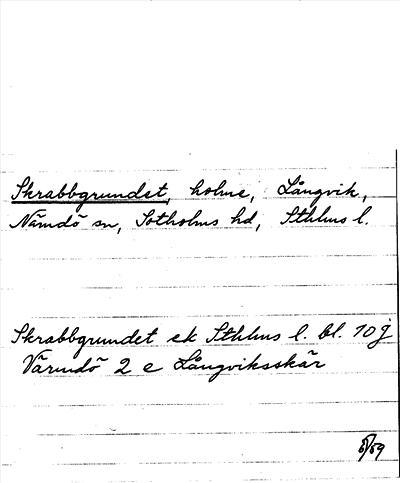 Skrabbgrundet, holme, Långvik,
Nämdö sn, Sotholms hd, Sthlms l.
Skrabbgrundet ek Sthlms l. bl. 10 j
Värmdö 2 e Långviksskär